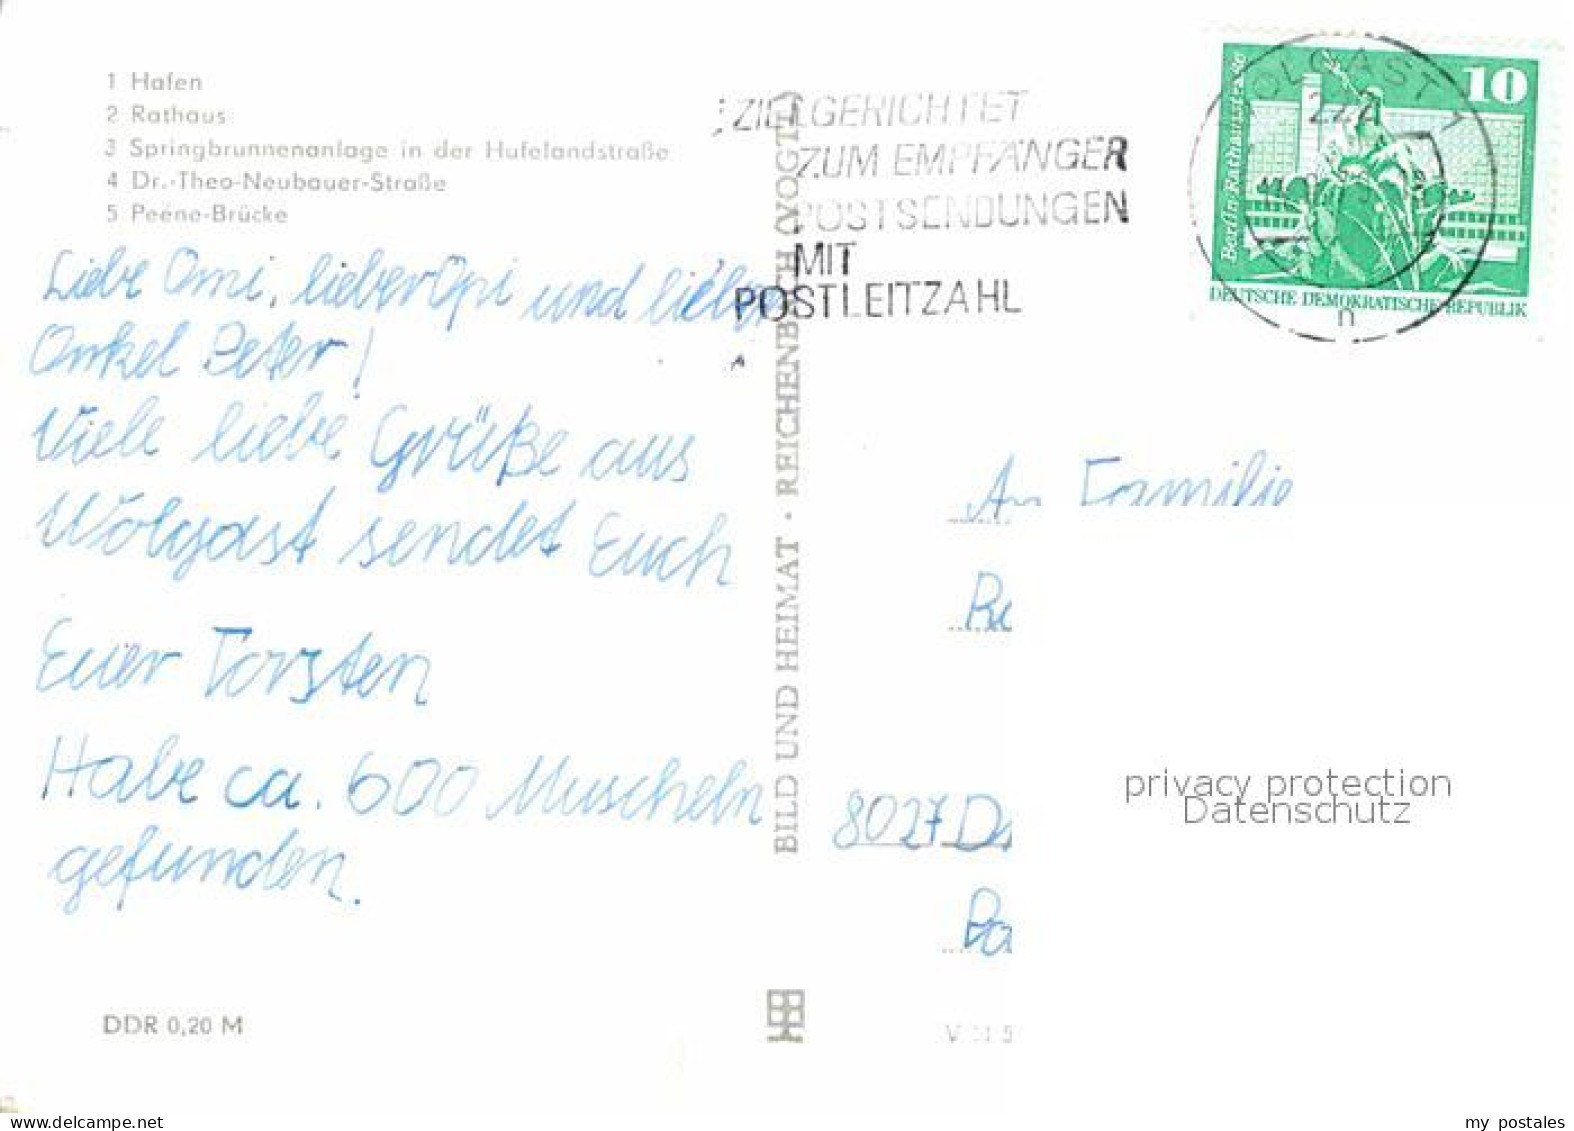 1 Hafen
2 Rathaus
3 Springbrunnenanlage in der Hufelandstraße
4 Dr.-Theo-Neubauer-Straße
5 Peene-Brücke
Liebe Omi, lieber Opi und lieber
Onkel Peter!
Viele liebe Grüße aus
Wolgast sendet Euch
Euer Torsten
Habe ca. 600 Muscheln
gefunden.
DDR 0,20 M
BILD UND HEIMAT · REICHENBACH (VOGTL)
ZIELGERICHTET
ZUM EMPFÄNGER
POSTSENDUNGEN
MIT
POSTLEITZAHL
WOLGAST 1
222
n
10
Berlin, Rathausstraße
DEUTSCHE DEMOKRATISCHE REPUBLIK
An Familie
8027
privacy protection
Datenschutz
delcampe.net
my_postales